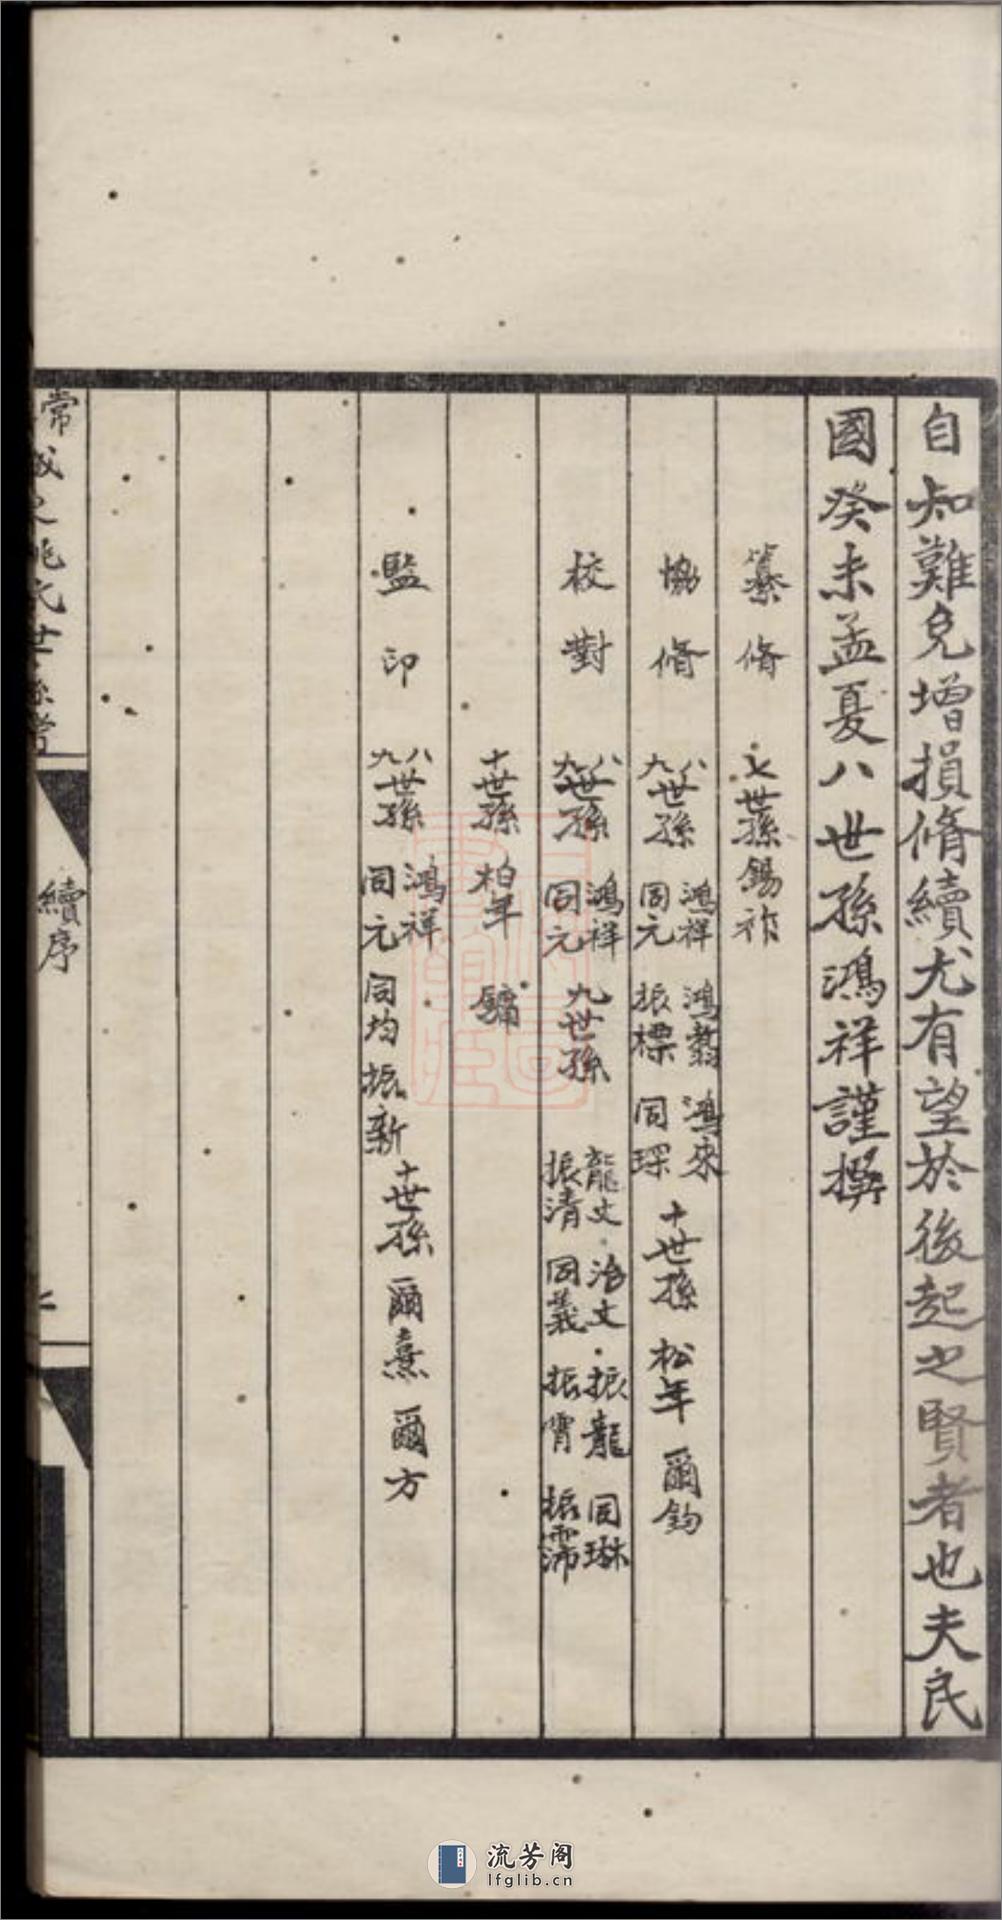 自知難免增損脩續尤有望於後起之賢者也夫民
國癸未孟夏八世孫鴻祥謹撰
纂脩 七世孫錫祚
協脩 八九世孫 鴻祥 鴻翥 鴻來 同元 振標 同琛 十世孫 松年 爾鈞
校對 八九世孫 鴻祥 同元 九世孫 龍文 治文 振龍 同琳 振清 同義 振霄 振霈
十世孫 柏年 鏞
監印 八九世孫 鴻祥 同元 同均 振新 十世孫 爾熹 爾方
續序
流芳阁
lfglib.cn